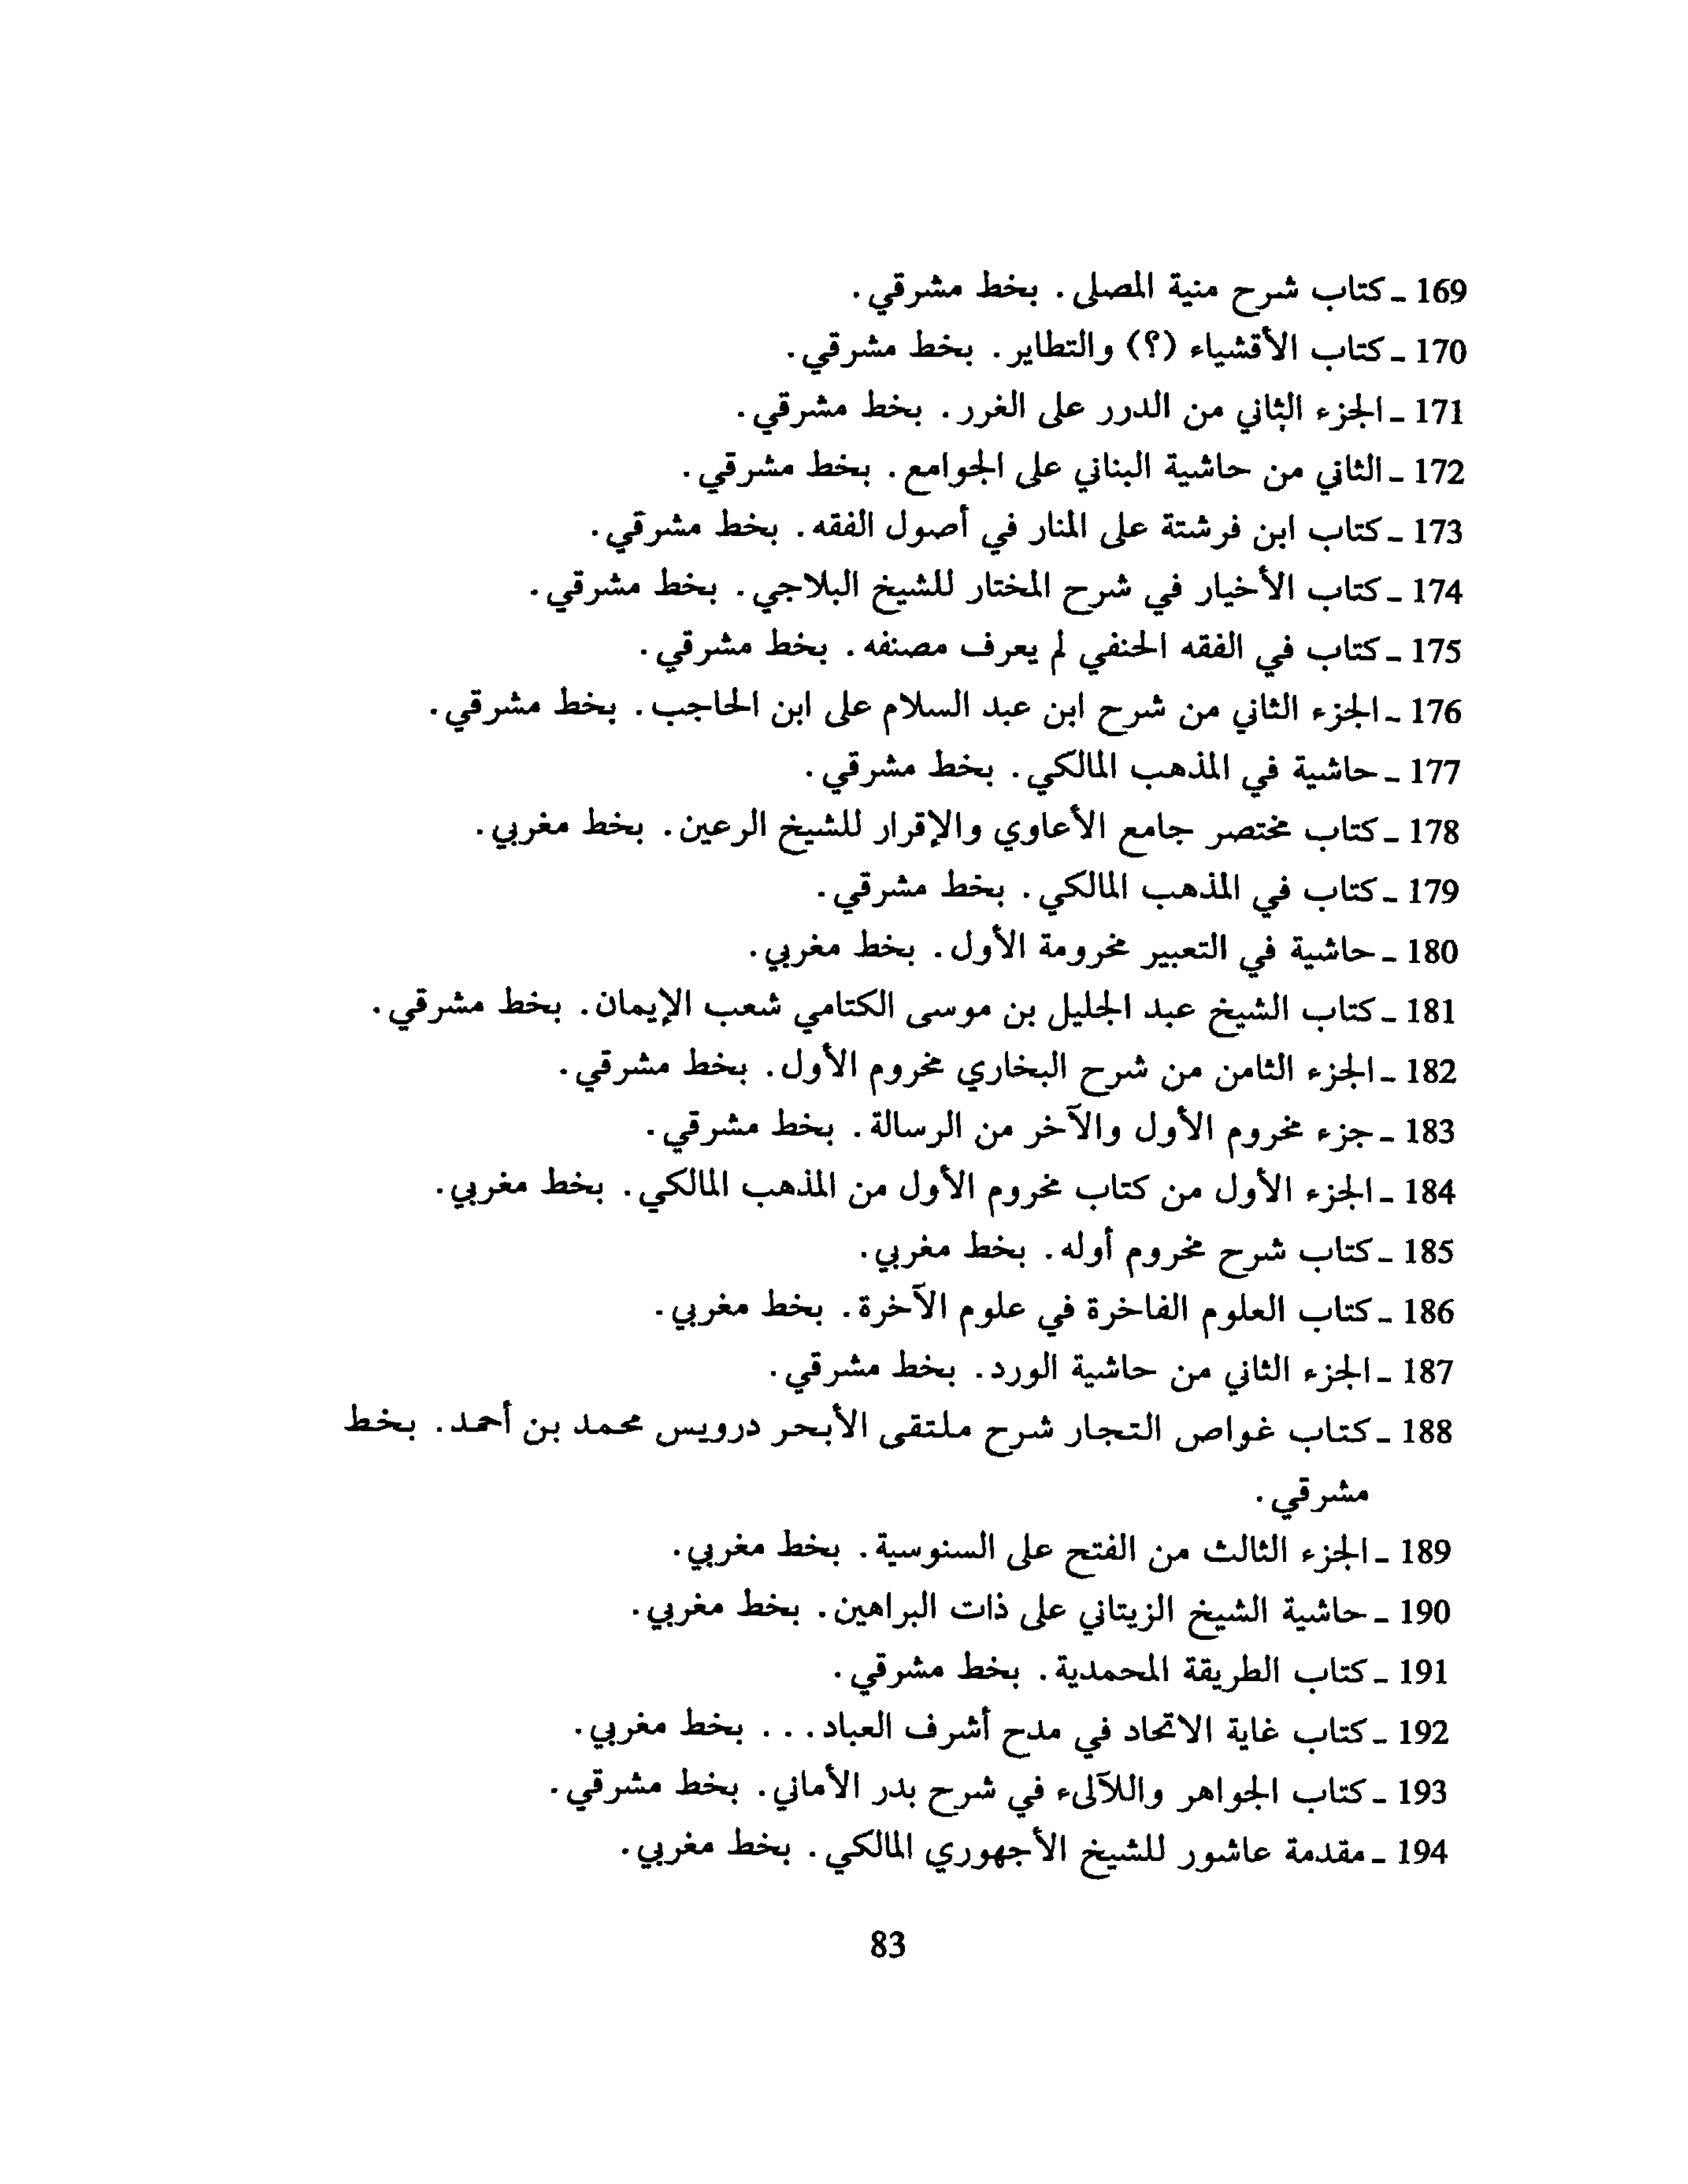 169 ـ كتاب شرح منية المصلى. بخط مشرقي.
170 ـ كتاب الأقشياء (؟) والتطاير. بخط مشرقي.
171 ـ الجزء الثاني من الدرر على الغرر. بخط مشرقي.
172 ـ الثاني من حاشية البناني على الجوامع. بخط مشرقي.
173 ـ كتاب ابن فرشتة على المنار في أصول الفقه. بخط مشرقي.
174 ـ كتاب الأخيار في شرح المختار للشيخ البلاجي. بخط مشرقي.
175 ـ كتاب في الفقه الحنفي لم يعرف مصنفه. بخط مشرقي.
176 ـ الجزء الثاني من شرح ابن عبد السلام على ابن الحاجب. بخط مشرقي.
177 ـ حاشية في المذهب المالكي. بخط مشرقي.
178 ـ كتاب مختصر جامع الأعاوي والإقرار للشيخ الرعين. بخط مغربي.
179 ـ كتاب في المذهب المالكي. بخط مشرقي.
180 ـ حاشية في التعبير مخرومة الأول. بخط مغربي.
181 ـ كتاب الشيخ عبد الجليل بن موسى الكتامي شعب الإيمان. بخط مشرقي.
182 ـ الجزء الثامن من شرح البخاري مخروم الأول. بخط مشرقي.
183 ـ جزء مخروم الأول والآخر من الرسالة. بخط مشرقي.
184 ـ الجزء الأول من كتاب مخروم الأول من المذهب المالكي. بخط مغربي.
185 ـ كتاب شرح مخروم أوله. بخط مغربي.
186 ـ كتاب العلوم الفاخرة في علوم الآخرة. بخط مغربي.
187 ـ الجزء الثاني من حاشية الورد. بخط مشرقي.
188 ـ كتاب غواص التجار شرح ملتقى الأبحر درويس محمد بن أحمد. بخط
مشرقي.
189 ـ الجزء الثالث من الفتح على السنوسية. بخط مغربي.
190 ـ حاشية الشيخ الزيتاني على ذات البراهين. بخط مغربي.
191 ـ كتاب الطريقة المحمدية. بخط مشرقي.
192 ـ كتاب غاية الاتحاد في مدح أشرف العباد... بخط مغربي.
193 ـ كتاب الجواهر واللآلىء في شرح بدر الأماني. بخط مشرقي.
194 ـ مقدمة عاشور للشيخ الأجهوري المالكي. بخط مغربي.
83